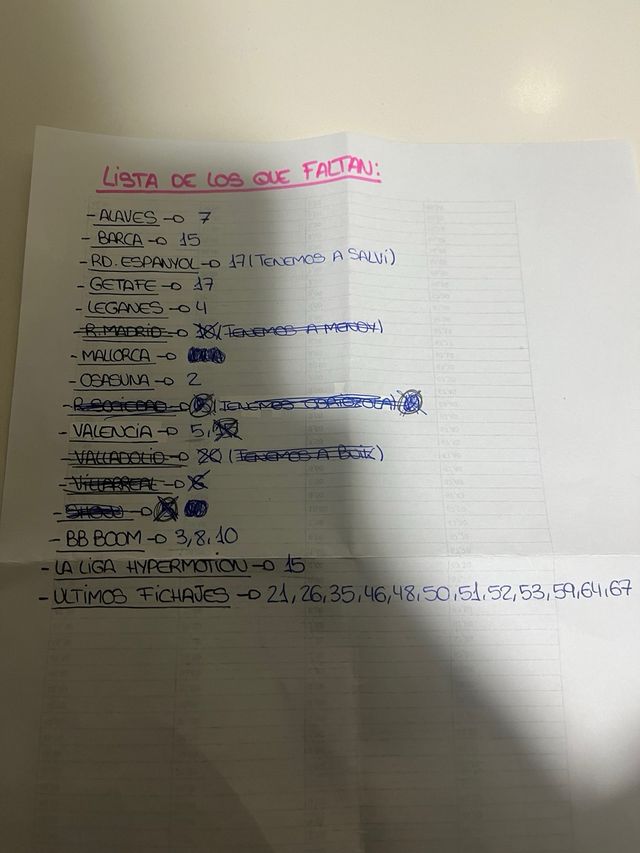 LISTA DE LOS QUE FALTAN:
- ALAVES -> 7
- BARCA -> 15
- RD. ESPANYOL -> 17 (TENEMOS A SALVI)
- GETAFE -> 17
- LEGANES -> 4
- R. MADRID -> (TENEMOS A MENDY)
- MALLORCA ->
- OSASUNA -> 2
- R. SOCIEDAD -> (TENEMOS ODRIOZOLA)
- VALENCIA -> 5,
- VALLADOLID -> 20 (TENEMOS A BUIK)
- VILLARREAL ->
- SHOW ->
- BB BOOM -> 3, 8, 10
- LA LIGA HYPERMOTION -> 15
- ULTIMOS FICHAJES -> 21, 26, 35, 46, 48, 50, 51, 52, 53, 59, 64, 67